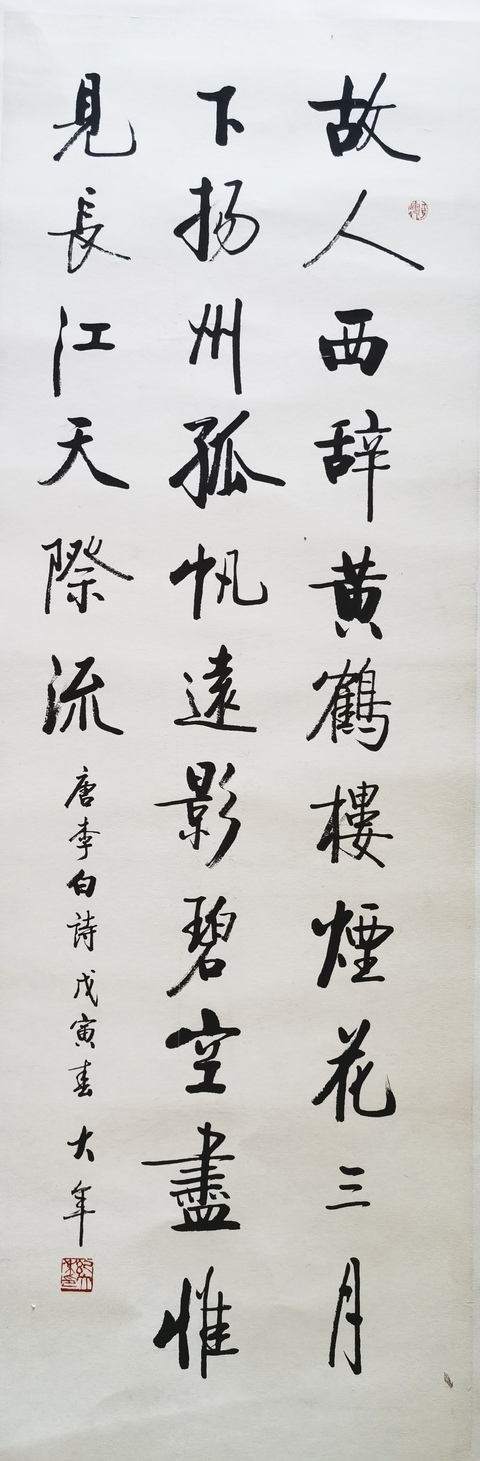 故人西辞黄鶴樓煙花三月
下扬州孤帆遠影碧空盡惟
見長江天際流
唐李白詩戊寅春大年